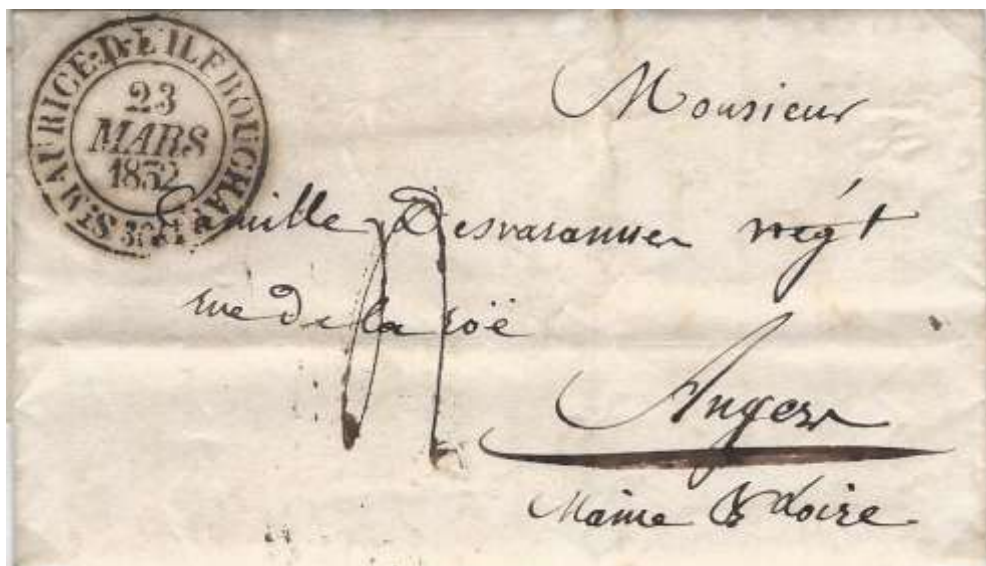 ST MAURICE-D-L'ILE BOUCHARD
23
MARS
1832
Monsieur
Camille Desvarannes négt
rue de la roë
Angers
Maine & Loire